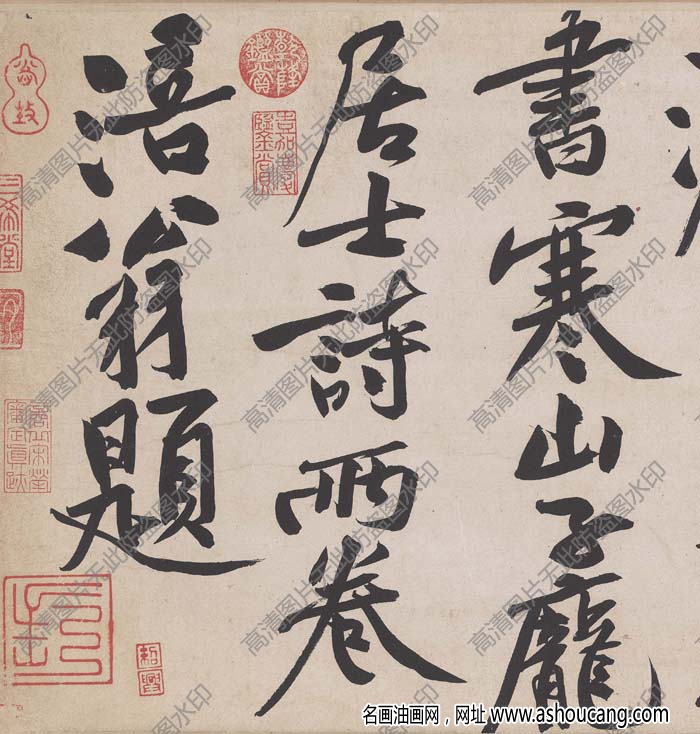 書寒山子龐
居士詩兩卷
涪翁題
乾隆鑑賞
三希堂
紹興
高清图片无此防盗图水印
名画油画网，网址 www.ashoucang.com